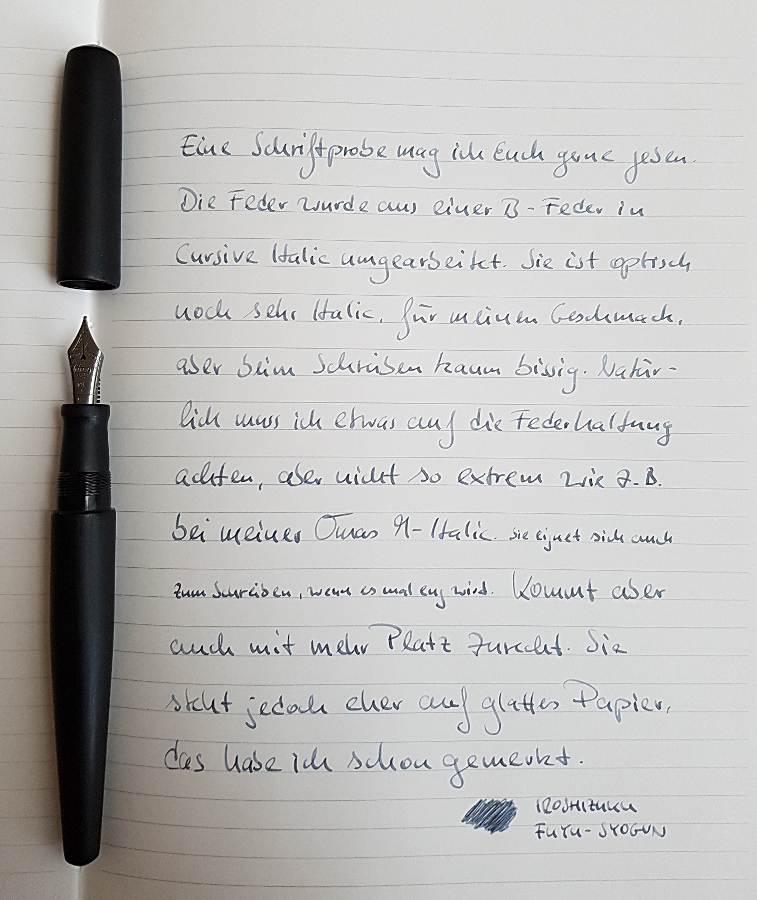 Eine Schriftprobe mag ich Euch gerne geben.
Die Feder wurde aus einer B-Feder in
Cursive Italic umgearbeitet. Sie ist optisch
noch sehr Italic, für meinen Geschmack,
aber beim Schreiben kaum bissig. Natür-
lich muss ich etwas auf die Federhaltung
achten, aber nicht so extrem wie z.B.
bei meiner Omas M-Italic. Sie eignet sich auch
zum Schreiben, wenn es mal eng wird. Kommt aber
auch mit mehr Platz zurecht. Sie
steht jedoch eher auf glattes Papier,
das habe ich schon gemerkt.
IROSHIZUKU
FUYU-SYOGUN